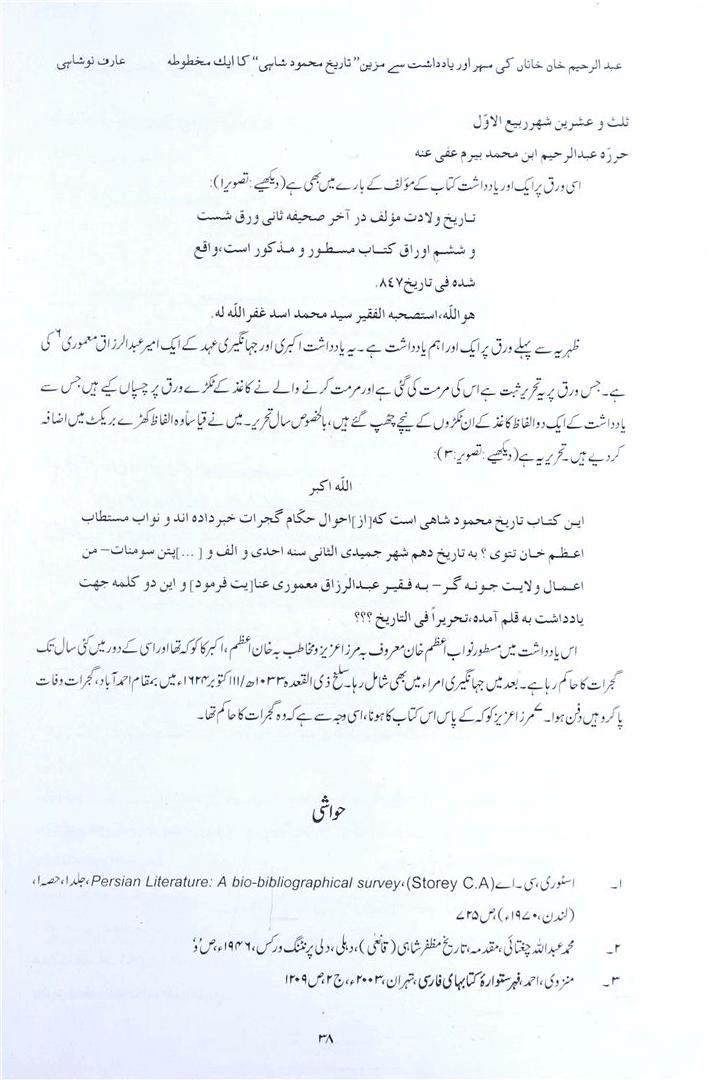 عبد الرحیم خان خاناں کی مہر اور یادداشت سے مزین ”تاریخ محمود شاہی“ کا ایك مخطوطه عارف نوشاہی
ثلث و عشرین شهر ربیع الاوّل
حررّه عبدالرحیم ابن محمد بیرم عفی عنه
اسی ورق پر ایک اور یادداشت کتاب کے مؤلف کے بارے میں بھی ہے (دیکھیے: تصویر۱):
تاریخ ولادت مؤلف در آخر صحیفه ثانی ورق شست
و ششم اوراق کتاب مسطور و مذکور است، واقع
شده فی تاریخ ٨٤٧.
هو اللّه، استصحبه الفقیر سید محمد اسد غفر اللّه له.
ظہریہ سے پہلے ورق پر ایک اور اہم یادداشت ہے۔ یہ یادداشت اکبری اور جہانگیری عہد کے ایک امیر عبدالرزاق معموری۶ کی
ہے۔ جس ورق پر یہ تحریر ثبت ہے اس کی مرمت کی گئی ہے اور مرمت کرنے والے نے کاغذ کے ٹکڑے ورق پر چسپاں کیے ہیں جس سے
یادداشت کے ایک دو الفاظ کاغذ کے ان ٹکڑوں کے نیچے چھپ گئے ہیں، بالخصوص سال تحریر۔ میں نے قیاساً وہ الفاظ کھڑے بریکٹ میں اضافہ
کر دیے ہیں۔ تحریر یہ ہے (دیکھیے: تصویر: ۳):
اللّه اکبر
این کتاب تاریخ محمود شاهی است که [از] احوال حکّام گجرات خبر داده اند و نواب مستطاب
اعظم خان تتوی ؟ به تاریخ دهم شهر جمیدی الثانی سنه احدی و الف و [...] پتن سومنات– من
اعمال ولایت جونه گر– به فقیر عبدالرزاق معموری عنا[یت فرمود] و این دو کلمه جهت
یادداشت به قلم آمده، تحریراً فی التاریخ ؟؟؟
اس یادداشت میں مسطور نواب اعظم خان معروف بہ مرزا عزیز و مخاطب بہ خان اعظم، اکبر کا کوکہ تھا اور اسی کے دور میں کئی سال تک
گجرات کا حاکم رہا ہے۔ بعد میں جہانگیری امراء میں بھی شامل رہا۔ سلخ ذی القعدہ ۱۰۳۳ھ/۱۱۱ کتوبر ۱۶۲۴ء میں بمقام احمد آباد، گجرات وفات
پا کر وہیں دفن ہوا۔۷ مرزا عزیز کوکہ کے پاس اس کتاب کا ہونا، اسی وجہ سے ہے کہ وہ گجرات کا حاکم تھا۔
حواشی
۱۔ اسٹوری، سی۔ اے (Storey C.A)، Persian Literature: A bio-bibliographical survey، جلد۱، حصہ۱،
(لندن، ۱۹۷۰ء) ص ۷۲۵
۲۔ محمد عبداللہ چغتائی، مقدمہ، تاریخ مظفر شاہی (قانعی)، دہلی، دلی پرنٹنگ ورکس، ۱۹۴۶ء، ص ’و‘
۳۔ منزوی، احمد، فهرستوارۀ کتابهای فارسی، تہران، ۲۰۰۳ء، ج۲، ص ۱۲۰۹
۳۸